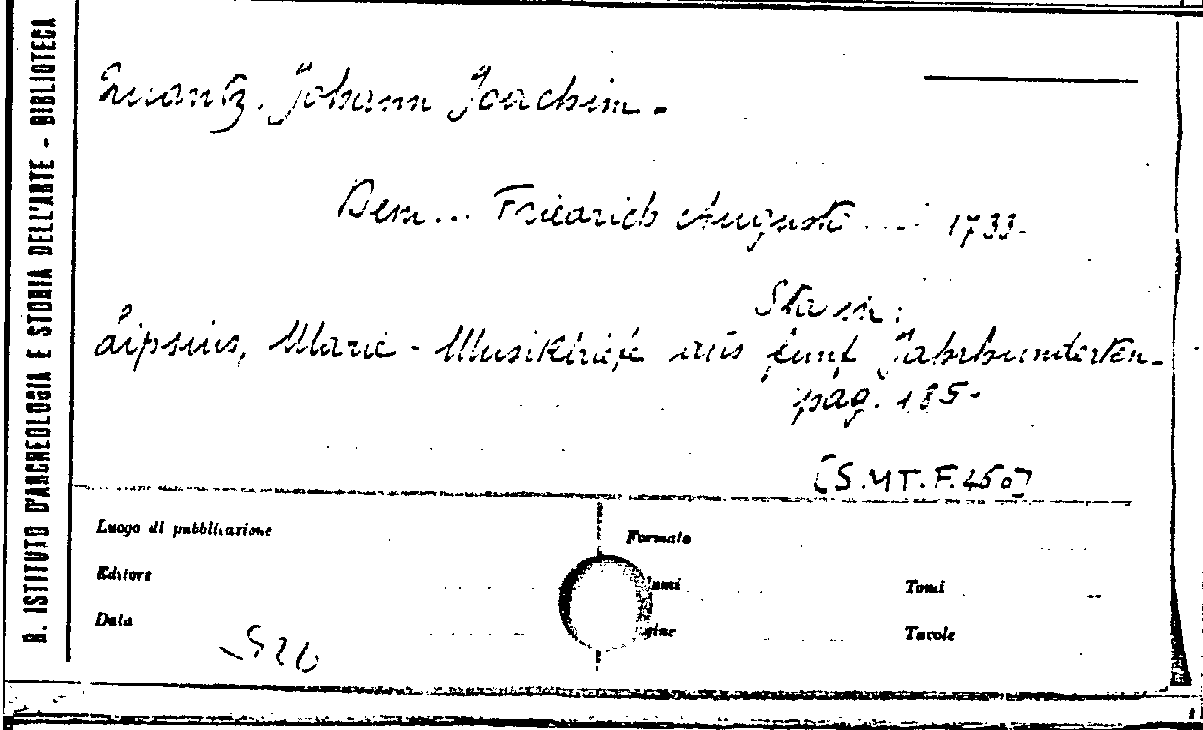 R. ISTITUTO D'ARCHEOLOGIA E STORIA DELL'ARTE - BIBLIOTECA
Quantz. Johann Joachim. -
Dem... Friedrich Augusto ..... 1733-
Sta in:
Lipsius, Marie - Musikbriefe aus fünf Jahrhunderten -
pag. 185-
[S. MT. F. 450]
Luogo di pubblicazione
Formato
Editore
lumi
Tomi
Data
gine
Tavole